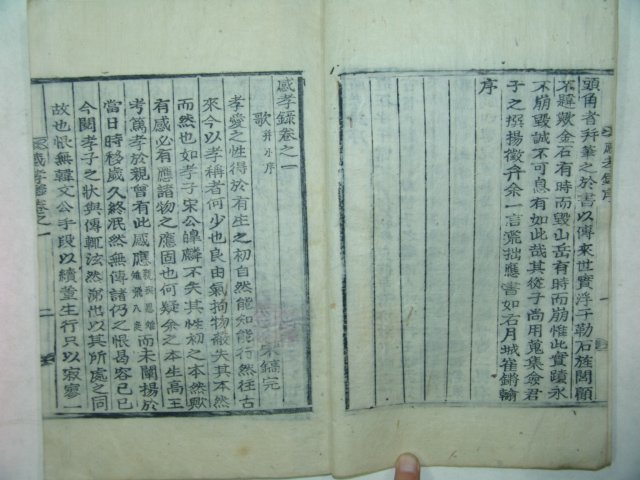 頭角者幷筆之於書以傳來世實浮子勒石旌閭顧
不韙歟金石有時而毁山岳有時而崩惟此實蹟永
不崩毁誠不可息有如此哉其從子尚用蒐集僉君
子之撰揚徵弁余一言荒拙應書如右月城崔鏘翰
序
感孝錄序
感孝錄卷之一
歌并小序
宋鎬完
孝愛之性得於有生之初自然能知能行然往古
來今以孝稱者何少也良由氣拘物蔽失其本然
而然也如孝子宋公皥麟不失其性初之本然歟
有感必有應諸物之應固也何疑余之本生高王
考篤孝於親曾有此感應而未闡揚於
當日時移歲久終泯然無傳諸仍之悵曷容已已
今閱孝子之狀與傳輒泫然涕出以其所處之同
故也恨無韓文公手段以續董生行只以寂寥一
感孝錄卷之一